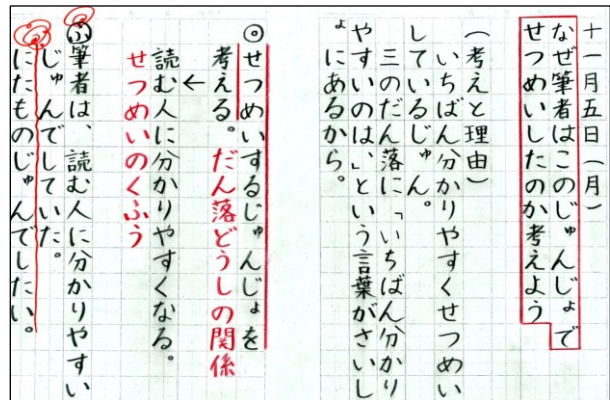 十一月五日(月)
なぜ筆者はこのじゅんじょで
せつめいしたのか考えよう
(考えと理由)
いちばん分かりやすくせつめい
しているじゅん。
三のだん落に「いちばん分かり
やすいのは」という言葉がさいし
ょにあるから。
◎せつめいするじゅんじょを
考える。だん落どうしの関係
←
読む人に分かりやすくなる。
せつめいのくふう
ふ筆者は、読む人に分かりやすい
じゅんでしていた。
にたものじゅんでしたい。